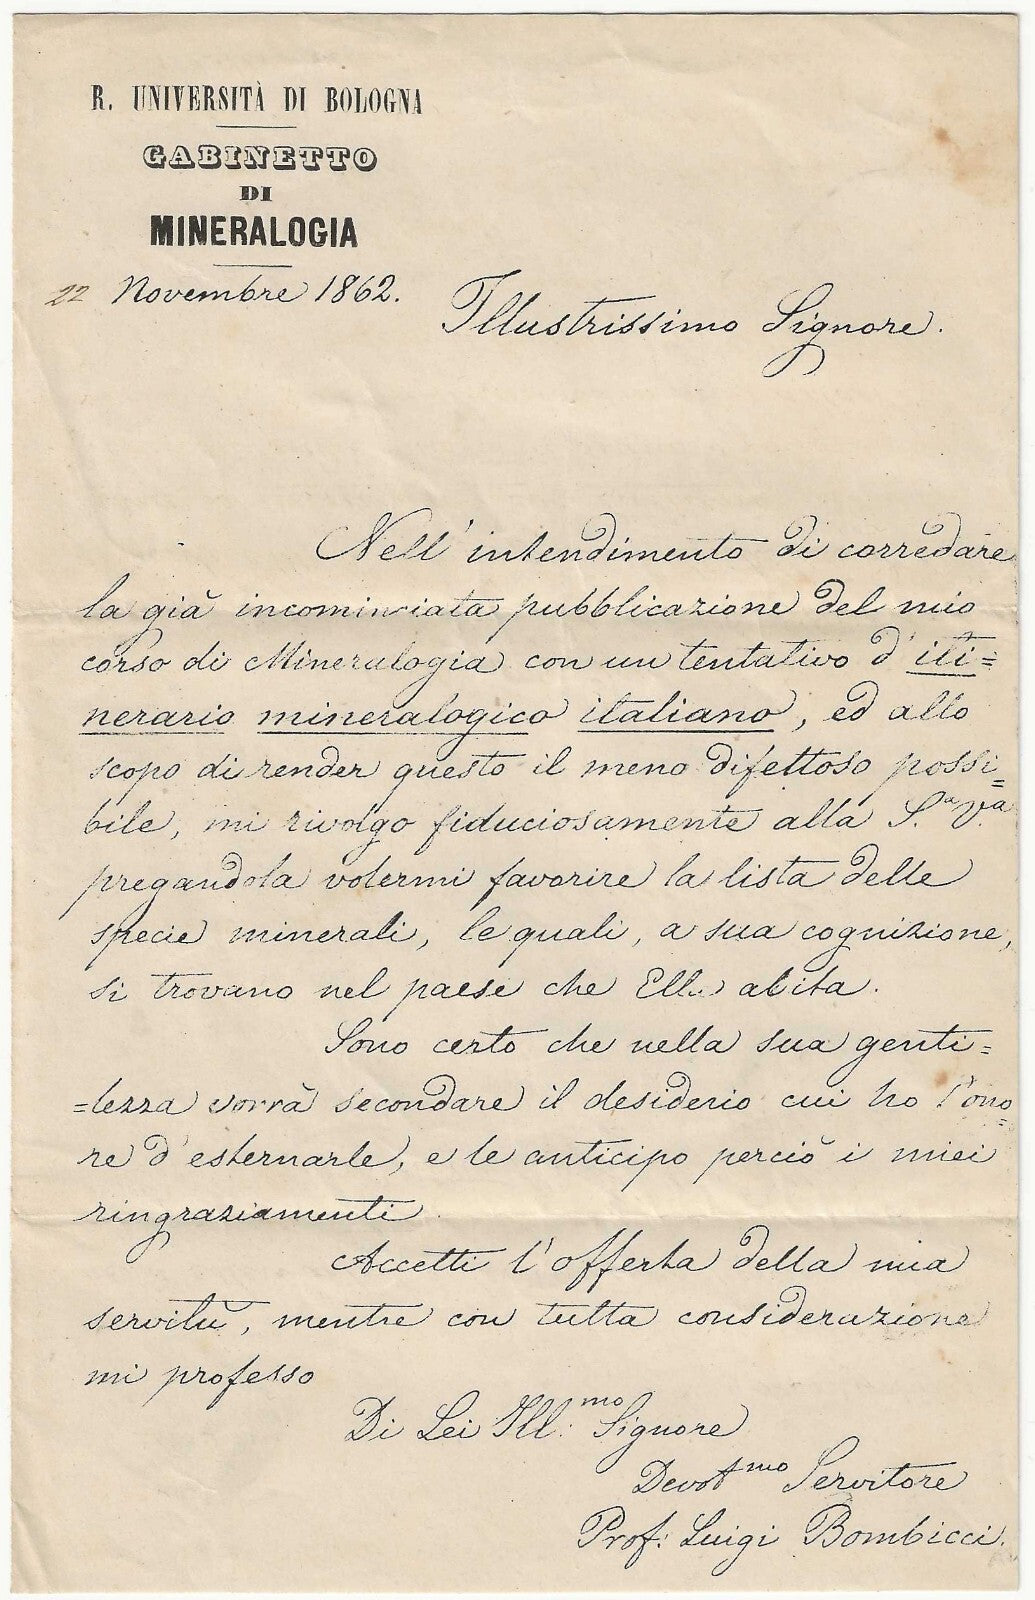 R. UNIVERSITÀ DI BOLOGNA
GABINETTO
DI
MINERALOGIA
22 Novembre 1862.
Illustrissimo Signore.
Nell' intendimento di corredare
la già incominciata pubblicazione del mio
corso di Mineralogia con un tentativo d' iti=
nerario mineralogico italiano, ed allo
scopo di render questo il meno difettoso possi=
bile, mi rivolgo fiduciosamente alla S.a V.a
pregandola volermi favorire la lista delle
specie minerali, le quali, a sua cognizione,
si trovano nel paese che Ella abita.
Sono certo che nella sua genti=
=lezza vorrà secondare il desiderio cui ho l'ono=
re d'esternarle, e le anticipo perciò i miei
ringraziamenti.
Accetti l'offerta della mia
servitù, mentre con tutta considerazione
mi professo
Di Lei Ill:mo Signore
Devot.mo Servitore
Prof: Luigi Bombicci.